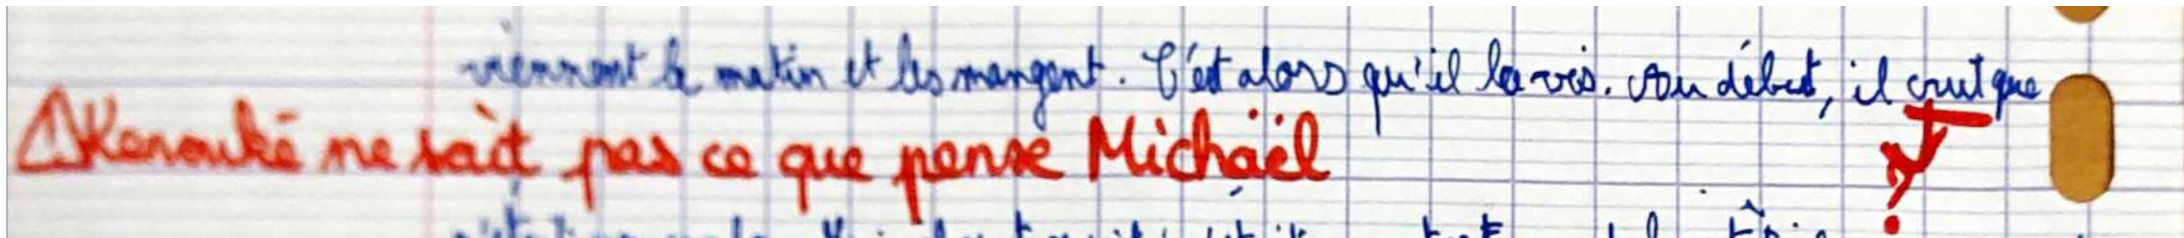 viennent le matin et les mangent. C'est alors qu'il la vis. Au début, il crut que
⚠Kenouké ne sait pas ce que pense Michaël
?